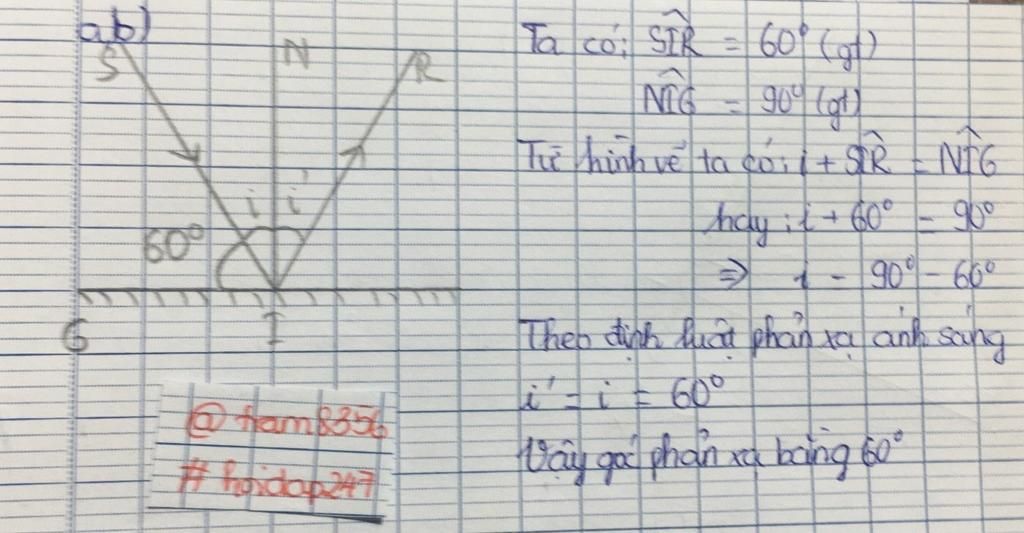 a,b)
S
N
R
i
i'
60°
G
I
@tram8356
#hoidap247
Ta có: SIR = 60° (gt)
NIG = 90° (gt)
Từ hình vẽ ta có: i + SIR = NIG
hay: i + 60° = 90°
⇒ i = 90° - 60°
Theo định luật phản xạ ánh sáng
i' = i = 60°
Vậy góc phản xạ bằng 60°